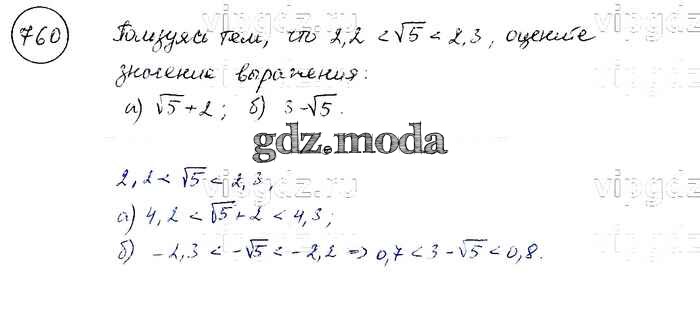 760 Пользуясь тем, что 2,2 < √5 < 2,3, оцените
значение выражения:
а) √5 + 2; б) 3 - √5.
gdz.moda
2,2 < √5 < 2,3,
а) 4,2 < √5 + 2 < 4,3;
б) -2,3 < -√5 < -2,2 => 0,7 < 3 - √5 < 0,8.